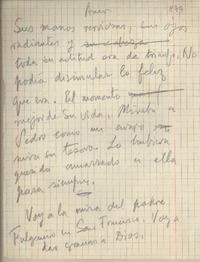 Amor 899
Sus manos nerviosas, sus ojos
radiantes y
toda su actitud era de triunfo. No
podía disimular lo feliz
que era. El momento
mejor de su vida. Miraba a
Pedro como un avaro
mira su tesoro. Lo hubiera
querido amarrado a ella
para siempre.
Voy a la misa del padre
Fulgencio en San Francisco. Voy a
dar gracias a Dios.